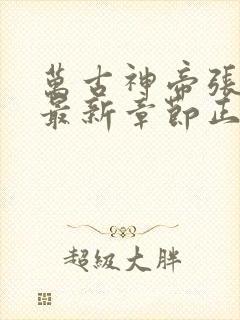 萬古神帝張
最新章節正
超級大胖